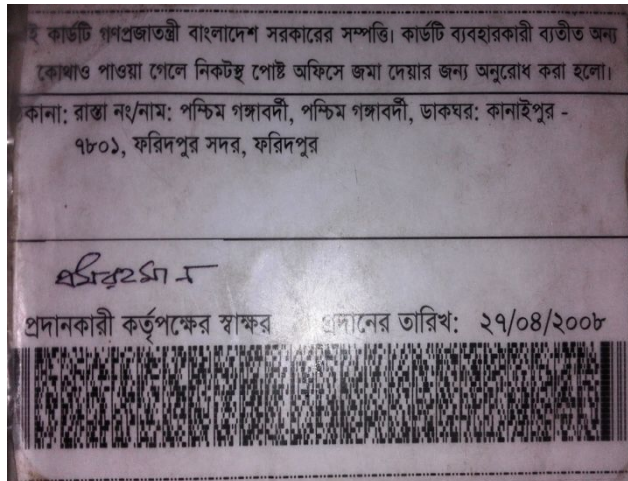 ই কার্ডটি গণপ্রজাতন্ত্রী বাংলাদেশ সরকারের সম্পত্তি। কার্ডটি ব্যবহারকারী ব্যতীত অন্য
কোথাও পাওয়া গেলে নিকটস্থ পোষ্ট অফিসে জমা দেয়ার জন্য অনুরোধ করা হলো।
কানা: রাস্তা নং/নাম: পশ্চিম গঙ্গাবর্দী, পশ্চিম গঙ্গাবর্দী, ডাকঘর: কানাইপুর -
৭৮০১, ফরিদপুর সদর, ফরিদপুর
প্রদানকারী কর্তৃপক্ষের স্বাক্ষর প্রদানের তারিখ: ২৭/০৪/২০০৮